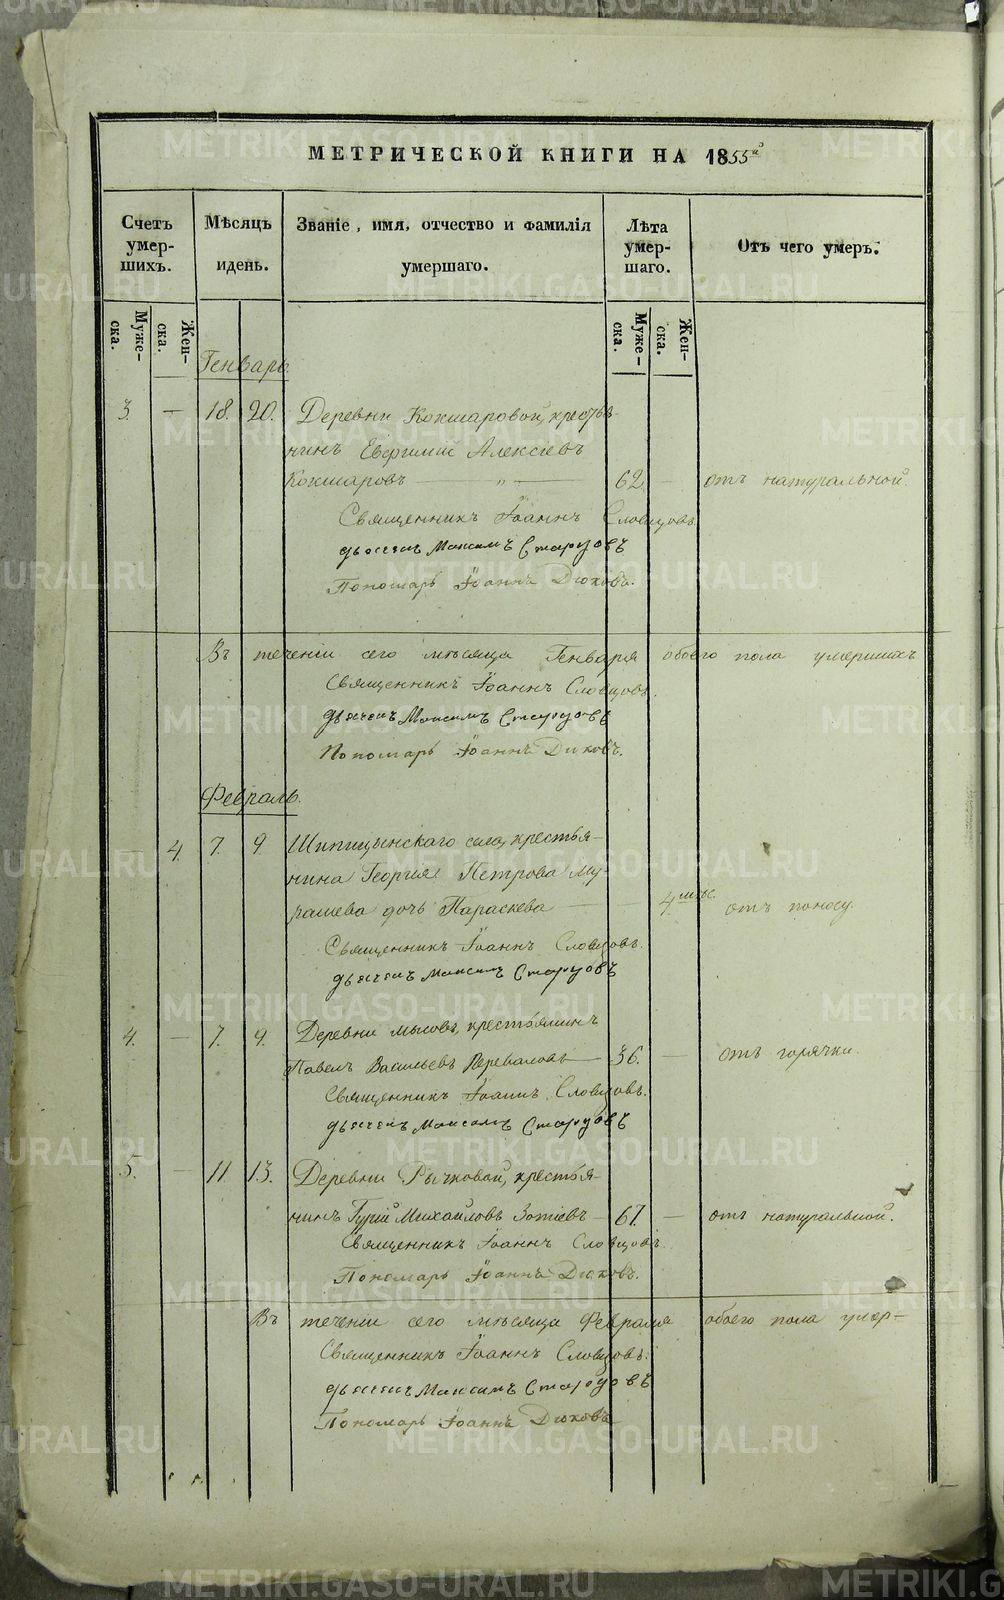 МЕТРИЧЕСКОЙ КНИГИ НА 1855й
Счетъ умер-шихъ.
Мѣсяцъ идень.
Званіе, имя, отчество и фамилія умершаго.
Лѣта умер-шаго.
Отъ чего умеръ.
Муже-ска.
Жен-ска.
Муже-ска.
Жен-ска.
Генварь.
3. — 18. 20. Деревни Кокшаровой, крестья-
нинъ Евфимій Алексѣевъ
Кокшаровъ — „ — 62. — отъ натуральной.
Священникъ Іоаннъ Словцовъ
дьячекъ Максимъ Старцовъ
Пономарь Іоаннъ Дюковъ.
Въ теченіи сего мѣсяца Генваря обоего пола умершихъ
Священникъ Іоаннъ Словцовъ.
дьячекъ Максимъ Старцовъ
Пономарь Іоаннъ Дюковъ.
Февраль.
— 4. 7. 9. Шипицынскаго села, крестья-
нина Георгия Петрова Му-
рашева дочь Параскева — — 4. мѣс. отъ поносу.
Священникъ Іоаннъ Словцовъ.
дьячекъ Максимъ Старцовъ
4. — 7. 9. Деревни Мысовъ, крестьянинъ
Павелъ Васильевъ Переваловъ — 36. — отъ горячки.
Священникъ Іоаннъ Словцовъ.
дьячекъ Максимъ Старцовъ
5. — 11. 13. Деревни Рычковой, крестья-
нинъ Гурій Михайловъ Зотѣевъ — 67. — отъ натуральной.
Священникъ Іоаннъ Словцовъ.
Пономарь Іоаннъ Дюковъ.
Въ теченіи сего мѣсяца Февраля обоего пола умер-
Священникъ Іоаннъ Словцовъ.
дьячекъ Максимъ Старцовъ
Пономарь Іоаннъ Дюковъ
METRIKI.GASO-URAL.RU